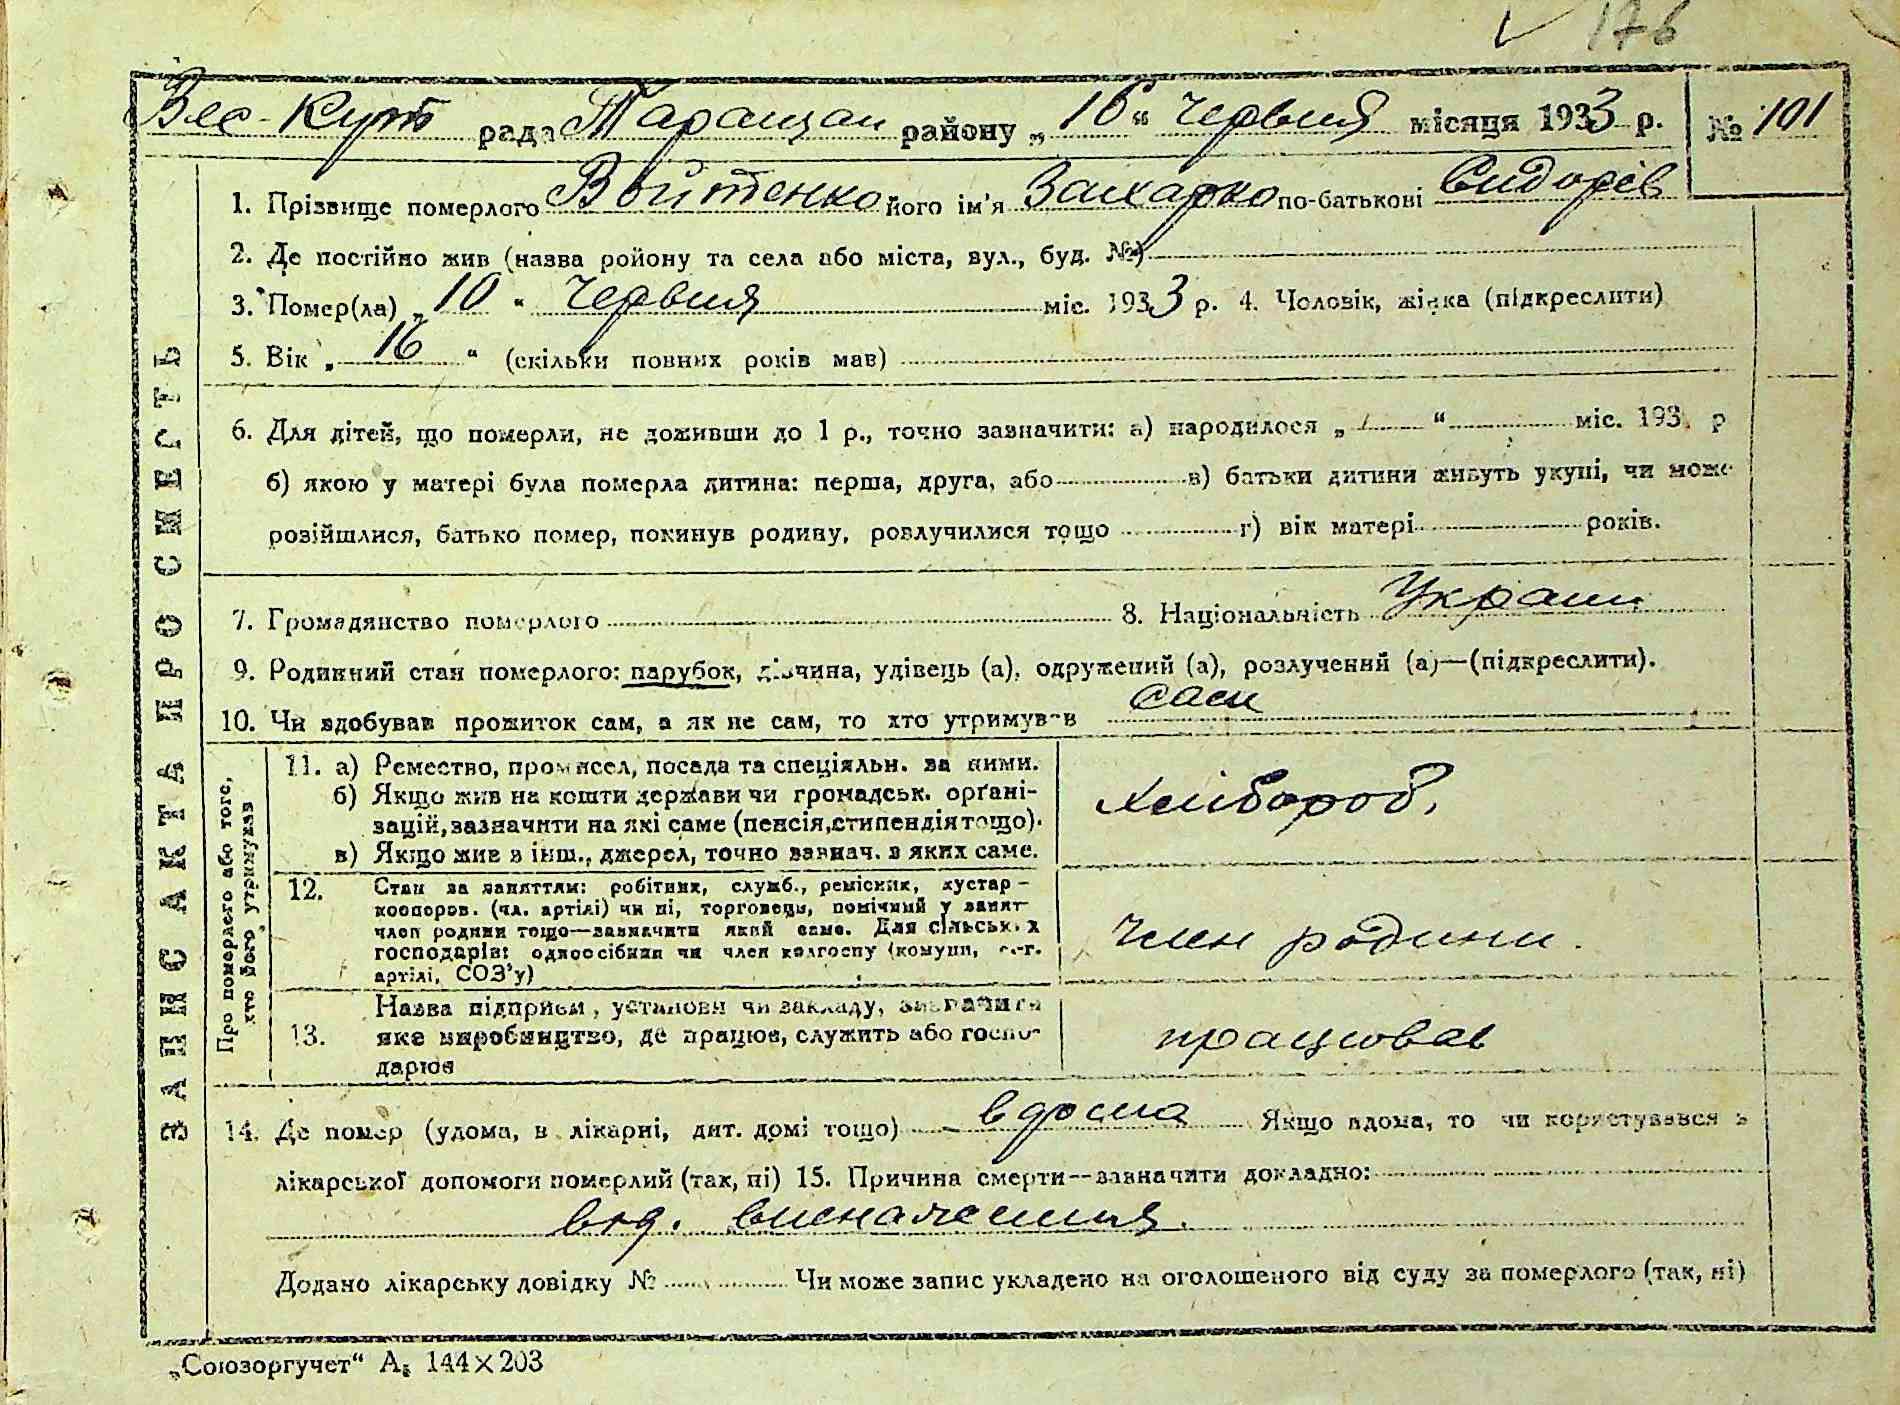 176
Вес-Кут рада Таращан району „16“ червня місяця 1933 р. № 101
ЗАПИС АКТА ПРО СМЕРТЬ
1. Прізвище померлого Войтенко його ім'я Захарко по-батькові Сидорів
2. Де постійно жив (назва ройону та села або міста, вул., буд. №)
3. Помер(ла) „10“ червня міс. 1933 р. 4. Чоловік, жінка (підкреслити)
5. Вік „16“ (скільки повних років мав)
6. Для дітей, що померли, не доживши до 1 р., точно зазначити: а) народилося „ “ міс. 193 р
б) якою у матері була померла дитина: перша, друга, або в) батьки дитини живуть укупі, чи може
розійшлися, батько помер, покинув родину, розлучилися тощо г) вік матері років.
7. Громадянство померлого 8. Національність Україн
9. Родинний стан померлого: парубок, дівчина, удівець (а), одружений (а), розлучений (а)—(підкреслити).
10. Чи здобував прожиток сам, а як не сам, то хто утримував сам
Про померлого або того, хто його утримував
11. а) Ремество, промисел, посада та спеціяльн. за ними.
б) Якщо жив на кошти держави чи громадськ. орґані-
зацій, зазначити на які саме (пенсія, стипендія тощо).
в) Якщо жив з інш., джерел, точно зазнач. з яких саме.
хлібороб.
12. Стан за заняттям: робітник, служб., ремісник, кустар -
кооперов. (чл. артілі) чи ні, торговець, помічний у занят-
член родини тощо—зазначити який саме. Для сільських
господарів: одноосібник чи член колгоспу (комуни, с.-г.
артілі, СОЗ'у)
Член родини.
13. Назва підприєм, установи чи закладу, зазначити
яке виробництво, де працює, служить або госпо-
дарює
працював
14. Де помер (удома, в лікарні, дит. домі тощо) вдома Якщо вдома, то чи користувався з
лікарської допомоги померлий (так, ні) 15. Причина смерти—зазначити докладно:
від. виснаження.
Додано лікарську довідку № Чи може запис укладено на оголошеного від суду за померлого (так, ні)
„Союзоргучет“ А₅ 144×203